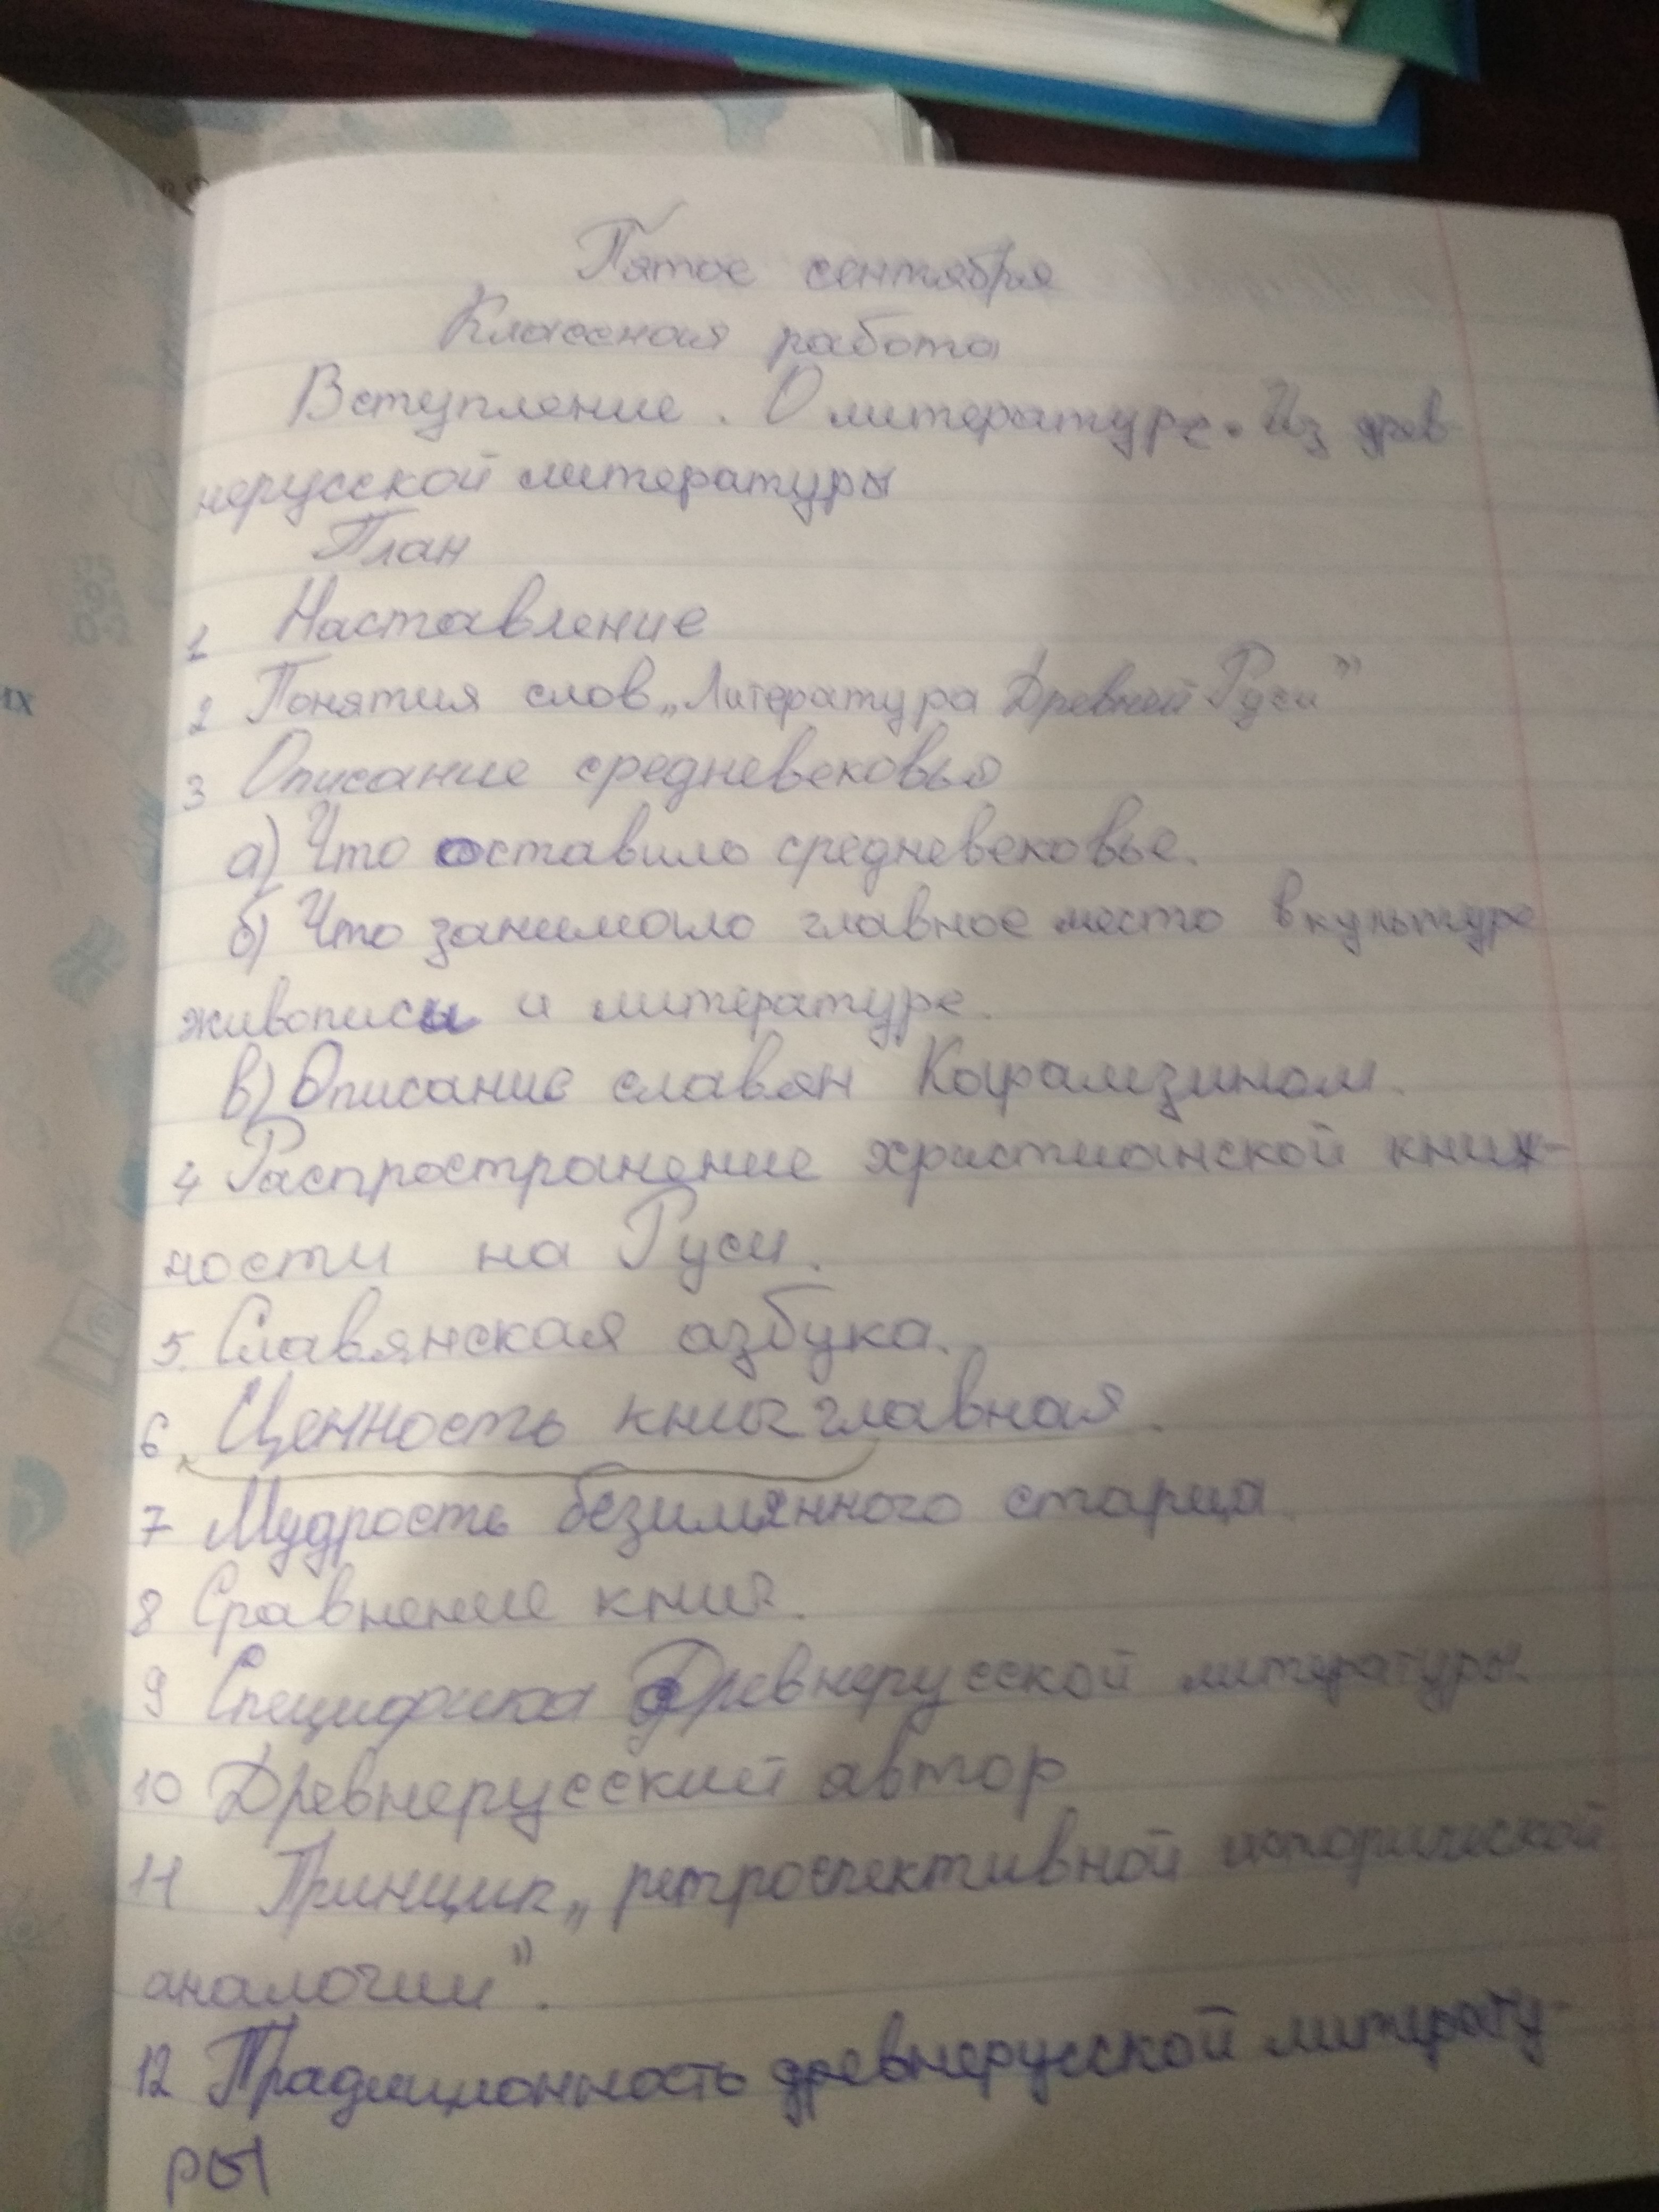 Пятое сентября
Классная работа
Вступление. О литературе. Из древ
нерусской литературы
План
1 Наставление
2 Понятия слов „Литература Древней Руси”
3 Описание средневековья
а) Что оставило средневековье.
б) Что занимало главное место в культуре
живописи и литературе.
в) Описание славян Карамзином.
4 Распространение христианской книж-
ности на Руси.
5. Славянская азбука.
6. Ценность книг главная.
7 Мудрость безимянного старца.
8 Сравнение книг.
9 Специфика Древнерусской литературы.
10 Древнерусский автор
11 Принцип „ретроспективной исторической
аналогии”.
12 Традиционность древнерусской литерату-
ры
их